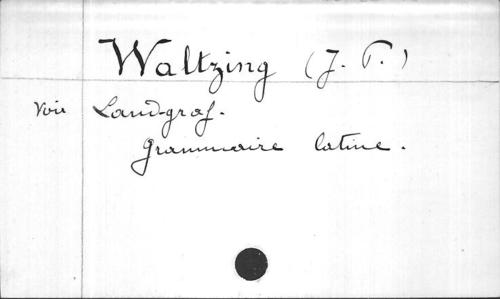 Waltzing (J. P.)
Voir Landgraf.
Grammaire latine.